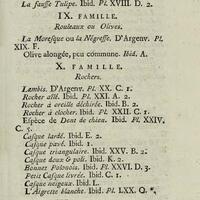 La fausse Tulipe. Ibid. Pl. XVIII. D. 2.
IX. FAMILLE.
Rouleaux ou Olives.
La Moresque ou la Négresse. D'Argenv. Pl.
XIX. F.
Olive alongée, peu commune. Ibid. A.
X. FAMILLE.
Rochers.
Lambis. D'Argenv. Pl. XX. C. 1.
Rocher ailé. Ibid. Pl. XXI. A. 2.
Rocher à oreille déchirée. Ibid. B. 2.
Rocher à clocher. Ibid. Pl. XXII. C. 1.
Espèce de Dent de chien. Ibid. Pl. XXIV.
C. 3.
Casque lardé. Ibid. E. 2.
Casque pavé. Ibid. 1.
Casque triangulaire. Ibid. XXV. B. 2.
Casque doux & poli. Ibid. K. 2.
Bonnet Polonois. Ibid. Pl. XXVI. D. 3.
Petit Casque livrée. Ibid. C. 1.
Casque neigeux. Ibid. L.
L'Aigrette blanche. Ibid. Pl. LXX. Q *.